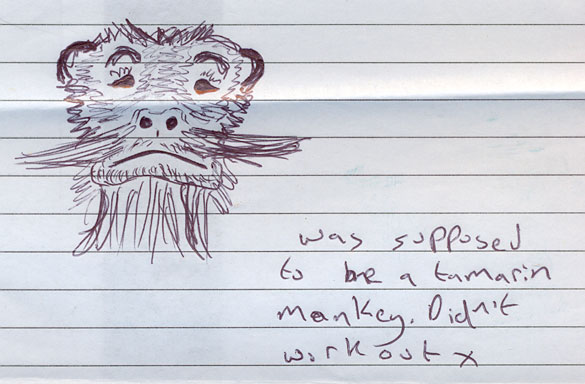 was supposed
to be a tamarin
monkey. Didn't
work out x